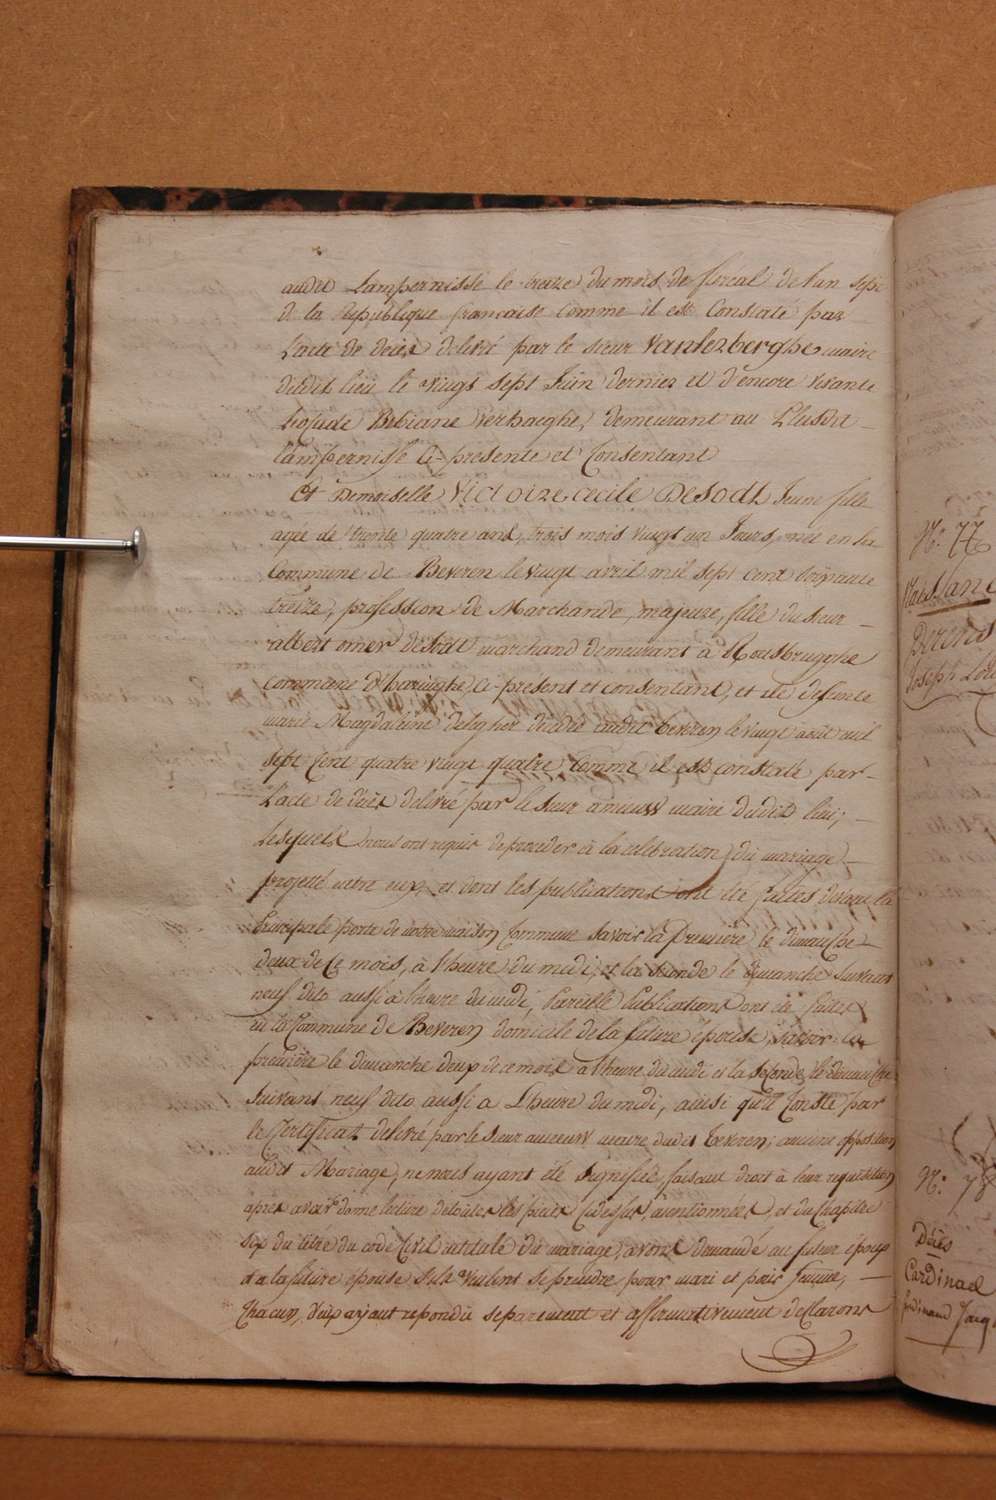 audit Lampernisse le treize du mois de floreal de l'an sept
de la republique francaise comme il est Constaté par
L'acte de décès delivré par le sieur Vanlerberghe maire
dudit lieu le vingt sept Juin dernier et d'encore vivante
Bibiane Verhaeghe, demeurant au Plusdit
Lampernisse Ci-presente et Consentant
Et Demoiselle Victoire Cecile Desodt Jeune fille
agée de trente quatre ans, trois mois vingt un Jours, née en la
Commune de Beveren le vingt avril mil sept cent soixante
treize, profession de Marchande, majeure, fille du sieur
albert omer Desodt marchand demeurant à Rousbrugghe
commune d'haringhe, Ci-present et consentant, et de defunte
marie Magdaleine deligher décédé audit Beveren le vingt août mil
sept Cent quatre vingt quatre comme il est constaté par
L'acte de décès delivré par le sieur ameeuw maire dudit lieu;
Lesquels nous ont requis de proceder à la celebration du mariage
projetté entre eux, et dont les publications ont été faites devant la
Principale porte de notre maison Commune Savoir la Premiere le dimanche
deux de Ce mois, à l'heure du midi, et la seconde le dimanche Suivant
neuf dito aussi à l'heure du midi, Pareille Publications ont été faites
à la Commune de Beveren domicile de la future épouse, savoir la
première le dimanche deux de ce mois à l'heure du midi et la seconde le dimanche
Suivant neuf dito aussi a L'heure du midi, ainsi qu'il Conste par
le Certificat delivré par le sieur ameeuw maire dudit Beveren; aucune opposition
audit Mariage, ne nous ayant été signifiée, faisant droit à leur requisition
après avoir donné lecture de toutes les pièces Cidessus mentionnées, et du Chapitre
Six du titre du code Civil intitulé du mariage, avons demandé au futur époux
et a la future épouse s'ils veulent se prendre pour mari et pour femme,
Chacun d'eux ayant repondu separement et affirmativement declarons
N.° 77
Joseph
N.° 78
Décès
Cardinael
ferdinand Jacq